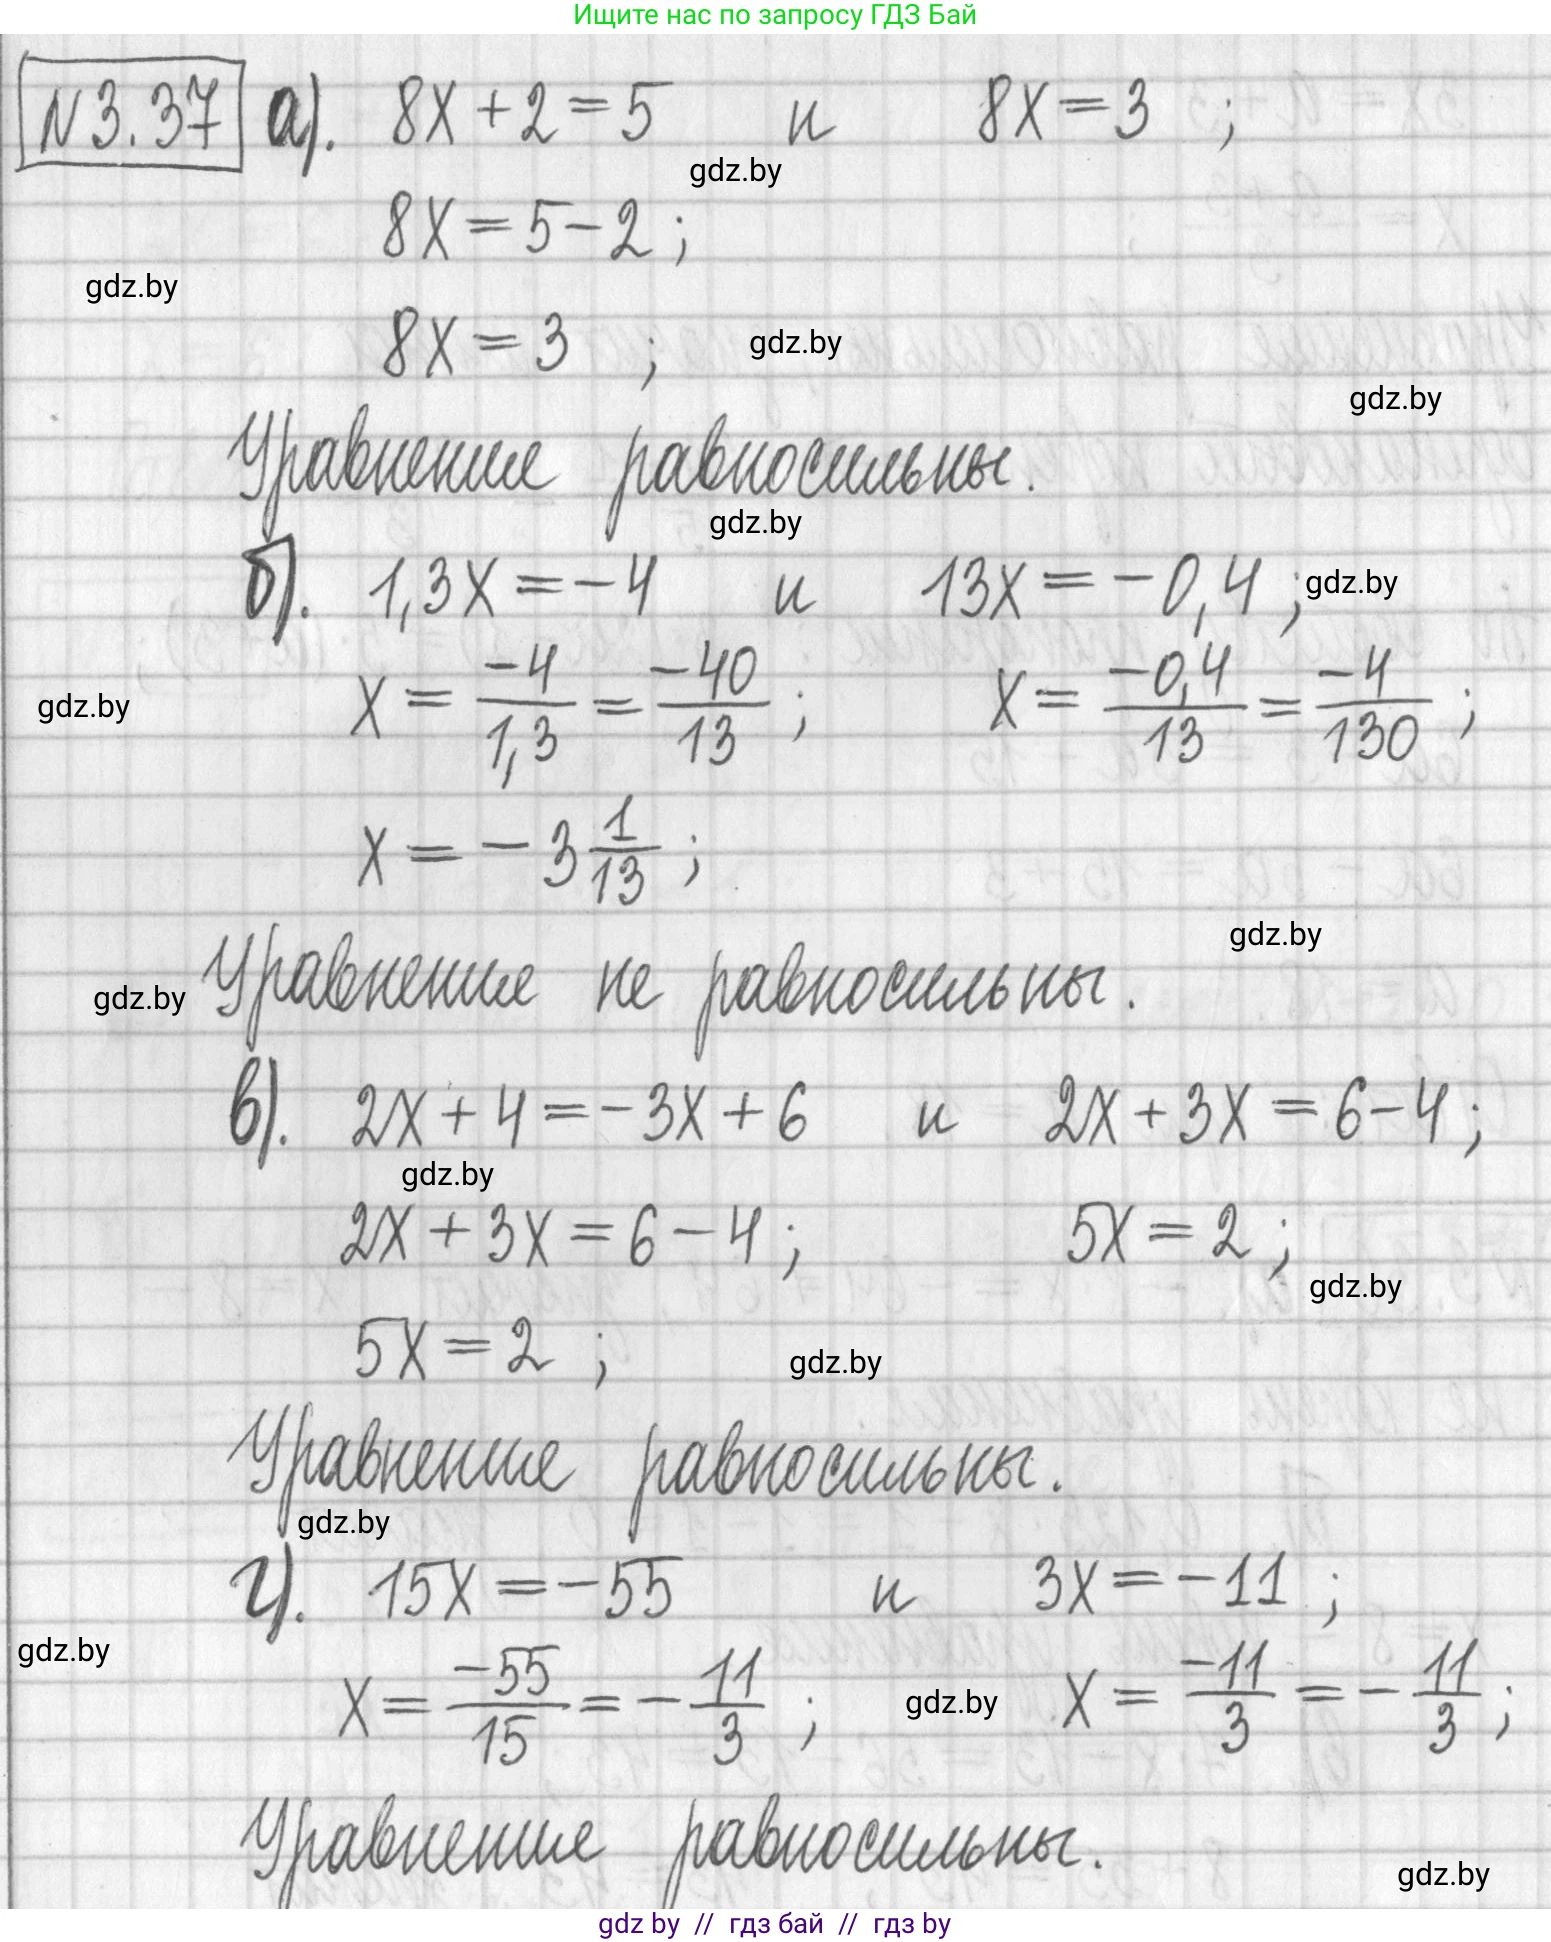 Ищите нас по запросу ГДЗ Бай
N 3.37 а). 8x + 2 = 5 и 8x = 3 ;
gdz.by
8x = 5 - 2 ;
gdz.by
8x = 3 ; gdz.by
gdz.by
Уравнение равносильны.
gdz.by
б). 1,3x = -4 и 13x = -0,4 ; gdz.by
gdz.by x = -4/1,3 = -40/13 ; x = -0,4/13 = -4/130 ;
x = -3 1/13 ;
gdz.by
gdz.by Уравнение не равносильны.
в). 2x + 4 = -3x + 6 и 2x + 3x = 6 - 4 ;
gdz.by
2x + 3x = 6 - 4 ; 5x = 2 ;
gdz.by
5x = 2 ; gdz.by
Уравнение равносильны.
gdz.by
г). 15x = -55 и 3x = -11 ;
gdz.by
x = -55/15 = -11/3 ; gdz.by x = -11/3 = -11/3 ;
Уравнение равносильны.
gdz.by
gdz by // гдз бай // гдз by